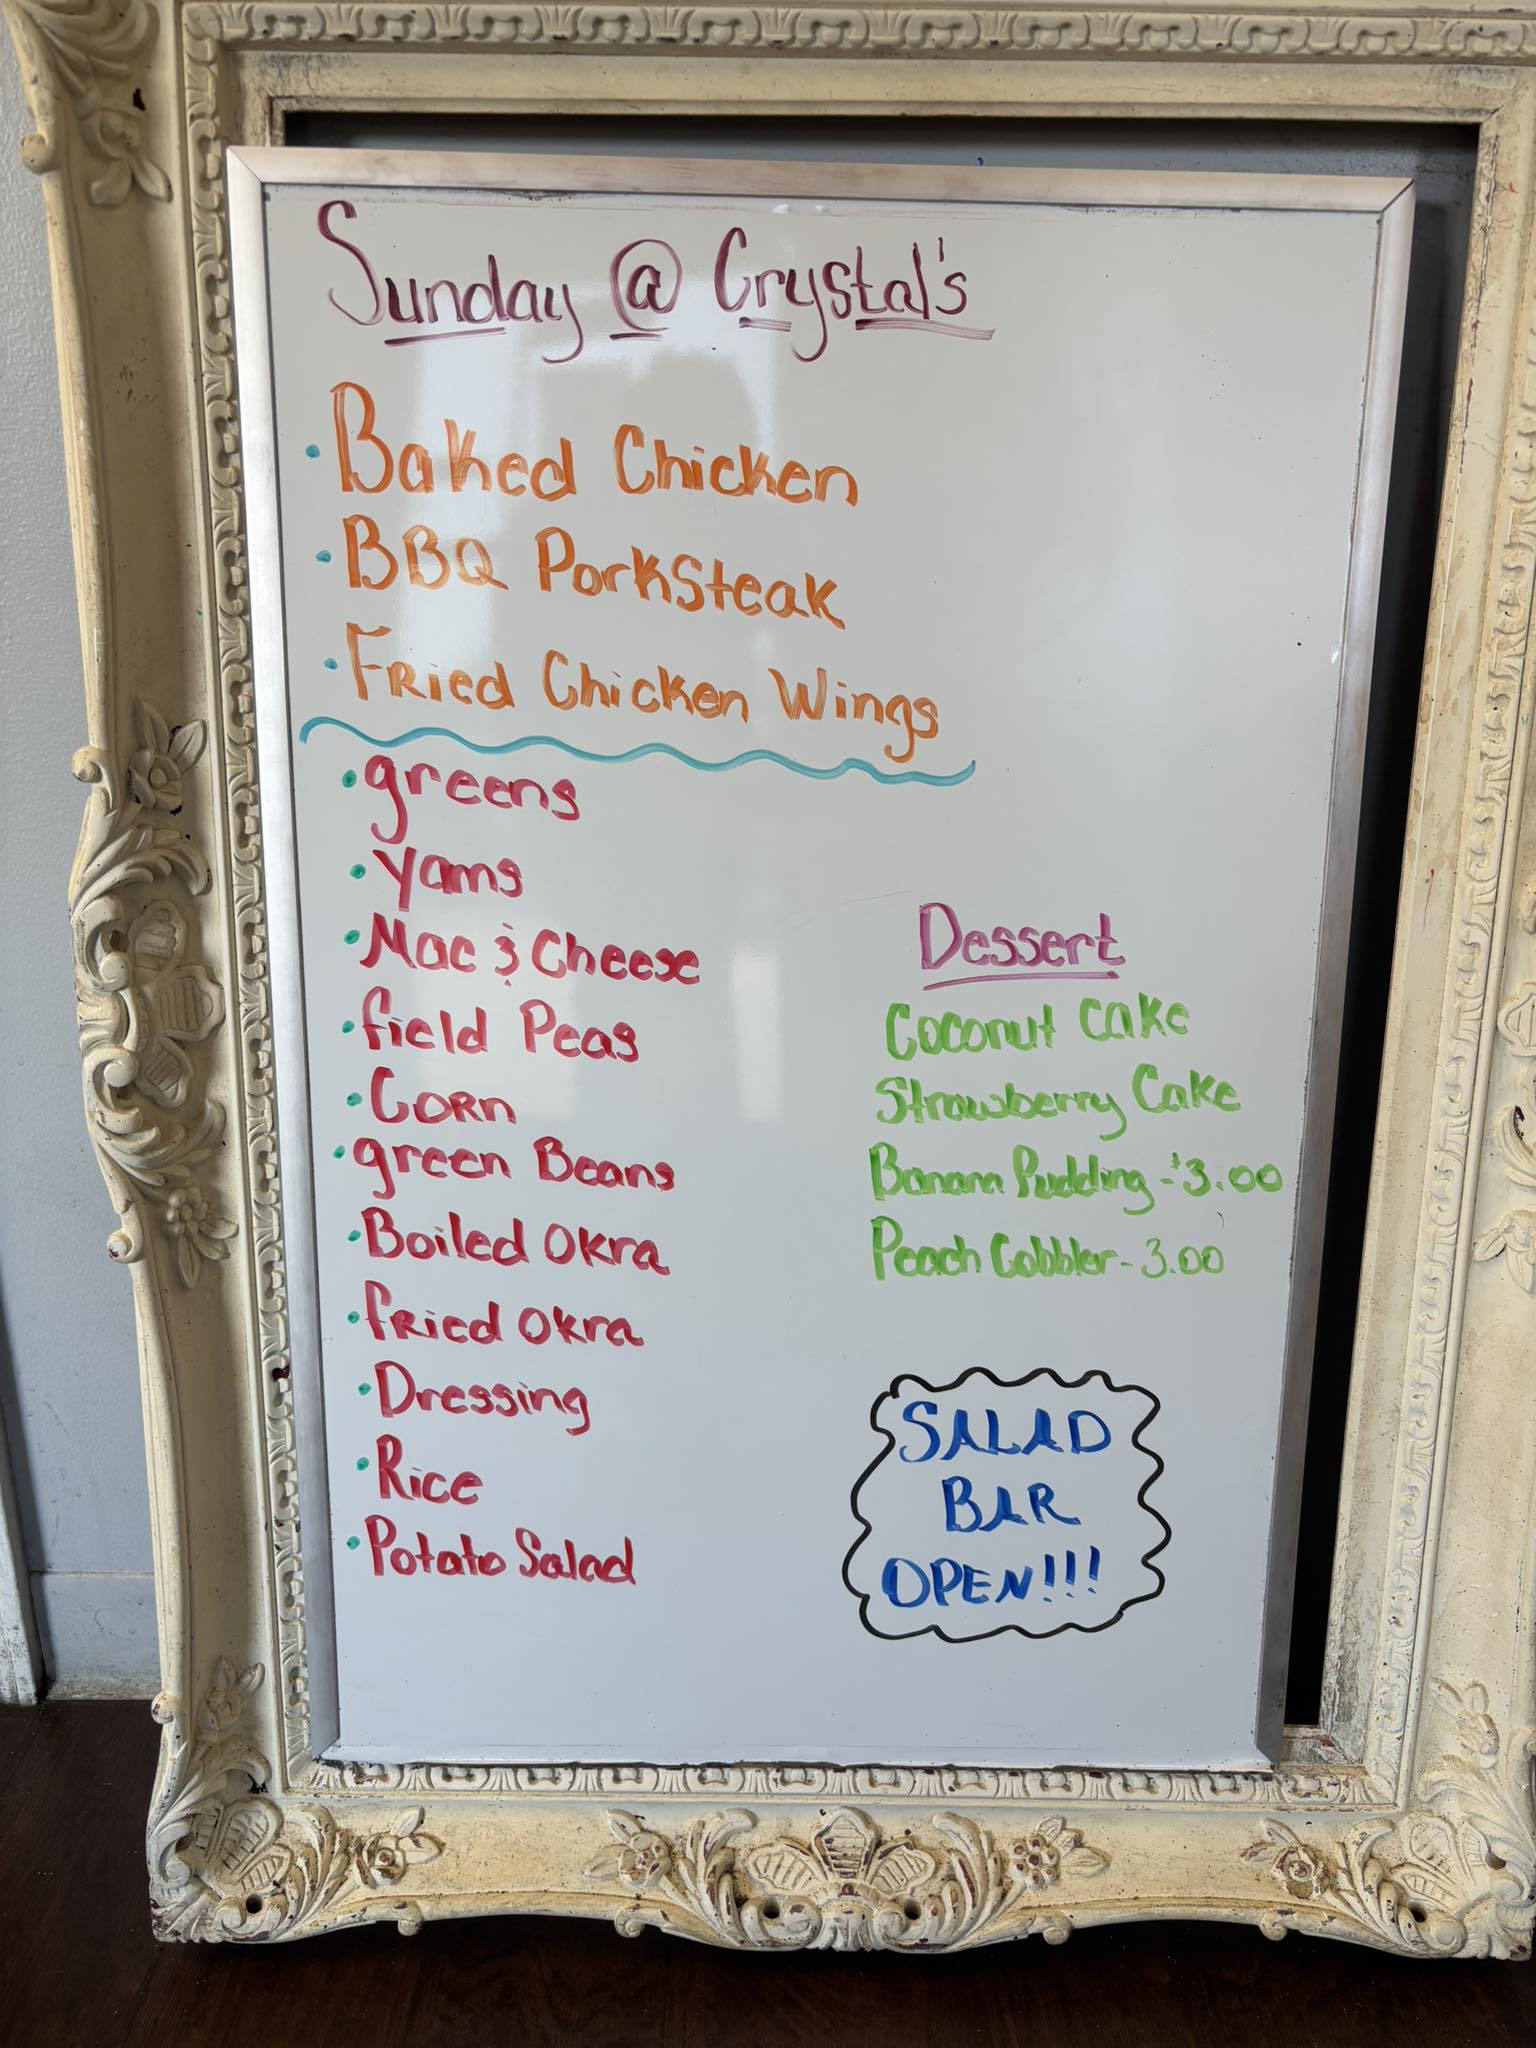 Sunday @ Crystal's
• Baked Chicken
• BBQ PorkSteak
• Fried Chicken Wings
• greens
• Yams
• Mac & Cheese
• field Peas
• Corn
• green Beans
• Boiled Okra
• fried Okra
• Dressing
• Rice
• Potato Salad
Dessert
Coconut Cake
Strawberry Cake
Banana Pudding - $3.00
Peach Cobbler - 3.00
SALAD
BAR
OPEN!!!